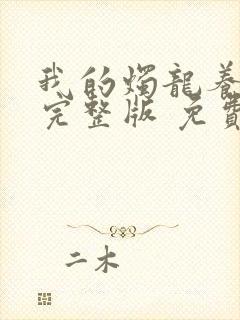 我的燭龍養
完整版 免費
二木